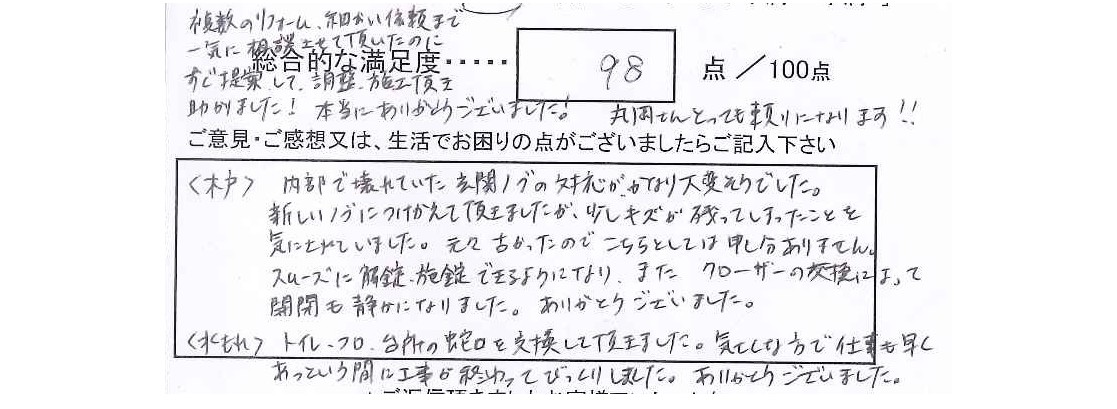 複数のリフォーム、細かい依頼まで
一気に相談させて頂いたのに
総合的な満足度‥‥‥ 98 点／100点
すぐ提案して、調整、施工頂き
助かりました! 本当にありがとうございました! 丸岡さんとっても頼りになります!!
ご意見・ご感想又は、生活でお困りの点がございましたらご記入下さい
〈木戸〉 内部で壊れていた玄関ノブの対応がかなり大変そうでした。
新しいノブにつけかえて頂きましたが、少しキズが残ってしまったことを
気にされていました。元々古かったのでこちらとしては申し分ありません。
スムーズに解錠、施錠できるようになり、また クローザーの交換によって
開閉も静かになりました。ありがとうございました。
〈水もれ〉 トイレ、フロ、台所の蛇口を交換して頂きました。気さくな方で仕事も早く
あっという間に工事が終わってびっくりしました。ありがとうございました。